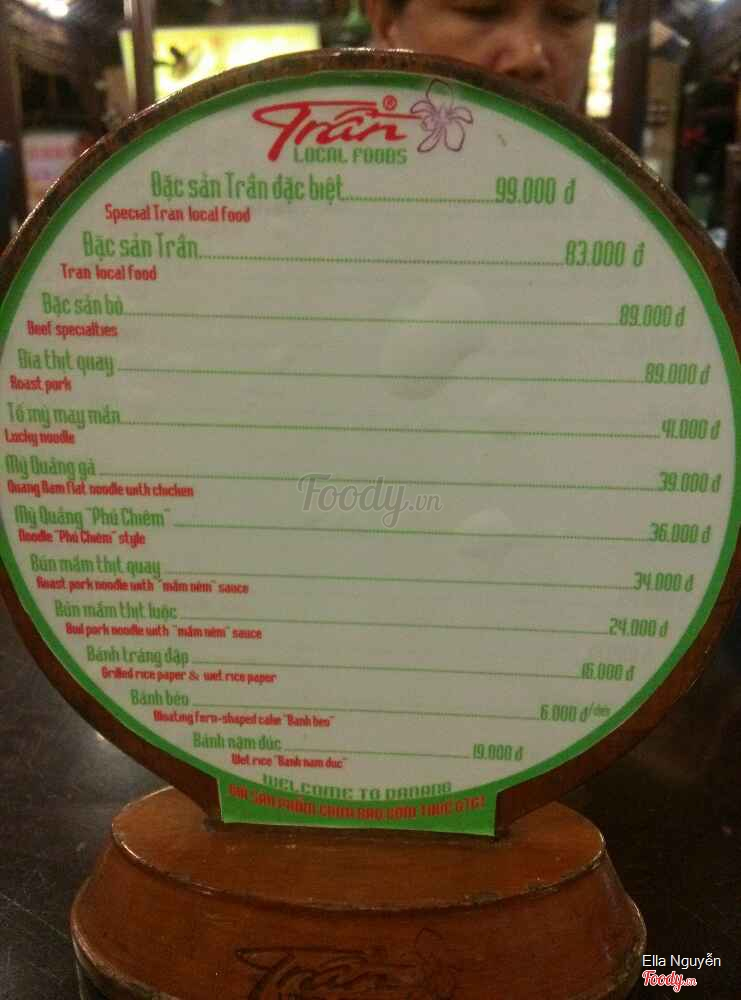 Trần®
LOCAL FOODS
Đặc sản Trần đặc biệt 99.000 đ
Special Tran local food
Đặc sản Trần 83.000 đ
Tran local food
Đặc sản bò 89.000 đ
Beef specialties
Dĩa thịt quay 89.000 đ
Roast pork
Tô mỳ may mắn 41.000 đ
Lucky noodle
Mỳ Quảng gà 39.000 đ
Quang Nam flat noodle with chicken
Mỳ Quảng "Phú Chiêm" 36.000 đ
Noodle "Phú Chiêm" style
Bún mắm thịt quay 34.000 đ
Roast pork noodle with "mắm nêm" sauce
Bún mắm thịt luộc 24.000 đ
pork noodle with "mắm nêm" sauce
Bánh tráng đập 16.000 đ
Grilled rice paper & wet rice paper
Bánh bèo 6.000 đ/chén
Bloating fern-shaped cake "Banh beo"
Bánh nậm đúc 19.000 đ
Wet rice "Banh nam duc"
WELCOME TO DANANG
GIÁ SẢN PHẨM CHƯA BAO GỒM THUẾ GTGT
Foody.vn
Trần
Ella Nguyễn
Foody.vn